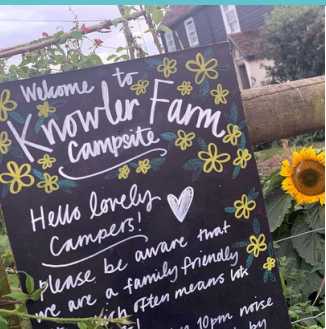 Welcome to
Knowler Farm
Campsite
Hello lovely
Campers!
please be aware that
we are a family friendly
which often means lots
10pm noise